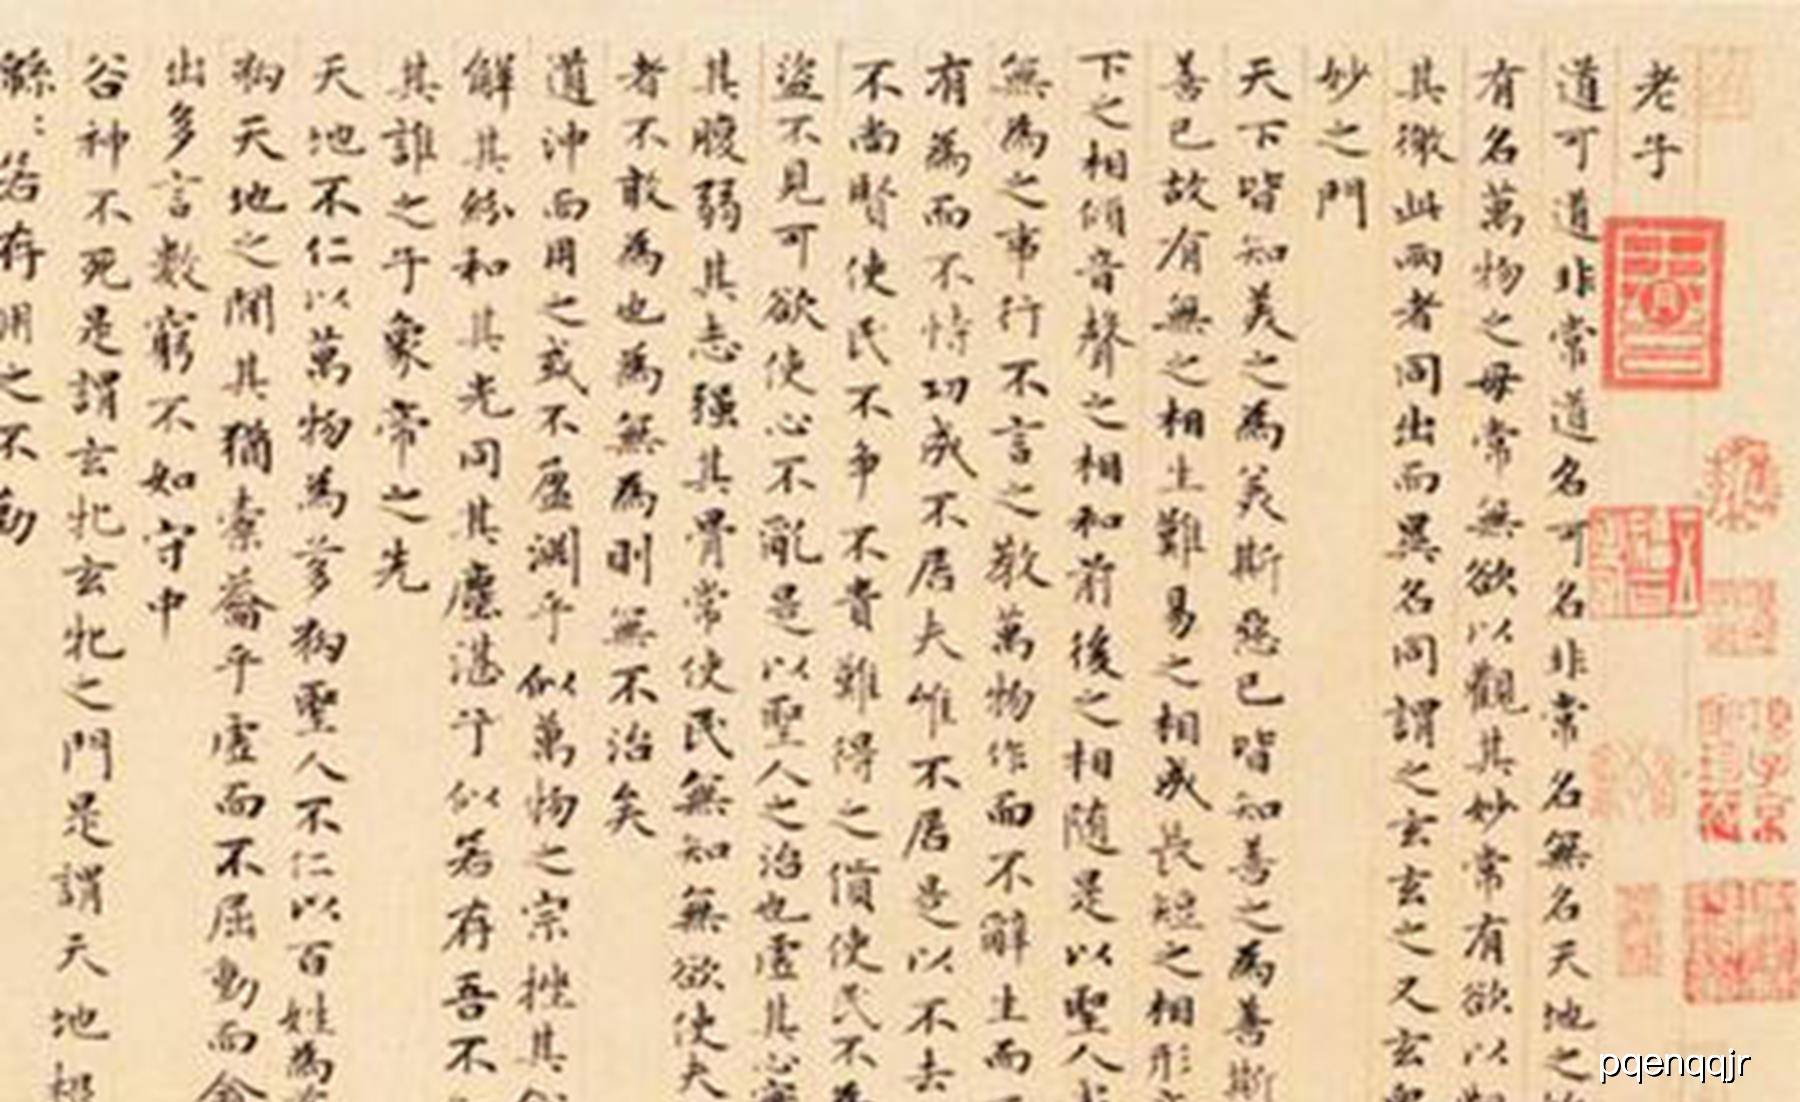 老子
道可道非常道名可名非常名無名天地之
有名萬物之母常無欲以觀其妙常有欲以
其徼此兩者同出而異名同謂之玄玄之又玄
妙之門
天下皆知美之為美斯惡已皆知善之為善斯
善已故有無之相生難易之相成長短之相形
下之相傾音聲之相和前後之相隨是以聖人
無為之事行不言之教萬物作而不辭生而
有為而不恃功成不居夫惟不居是以不去
不尚賢使民不爭不貴難得之貨使民不
盜不見可欲使心不亂是以聖人之治也虛其心
其腹弱其志强其骨常使民無知無欲使夫
者不敢為也為無為則無不治矣
道沖而用之或不盈淵乎似萬物之宗挫其
解其紛和其光同其塵湛乎似若存吾不
其誰之子象帝之先
天地不仁以萬物為芻狗聖人不仁以百姓為
狗天地之間其猶橐籥乎虛而不屈動而
出多言數窮不如守中
谷神不死是謂玄牝玄牝之門是謂天地根
緜:若存用之不勤
pqenqqjr